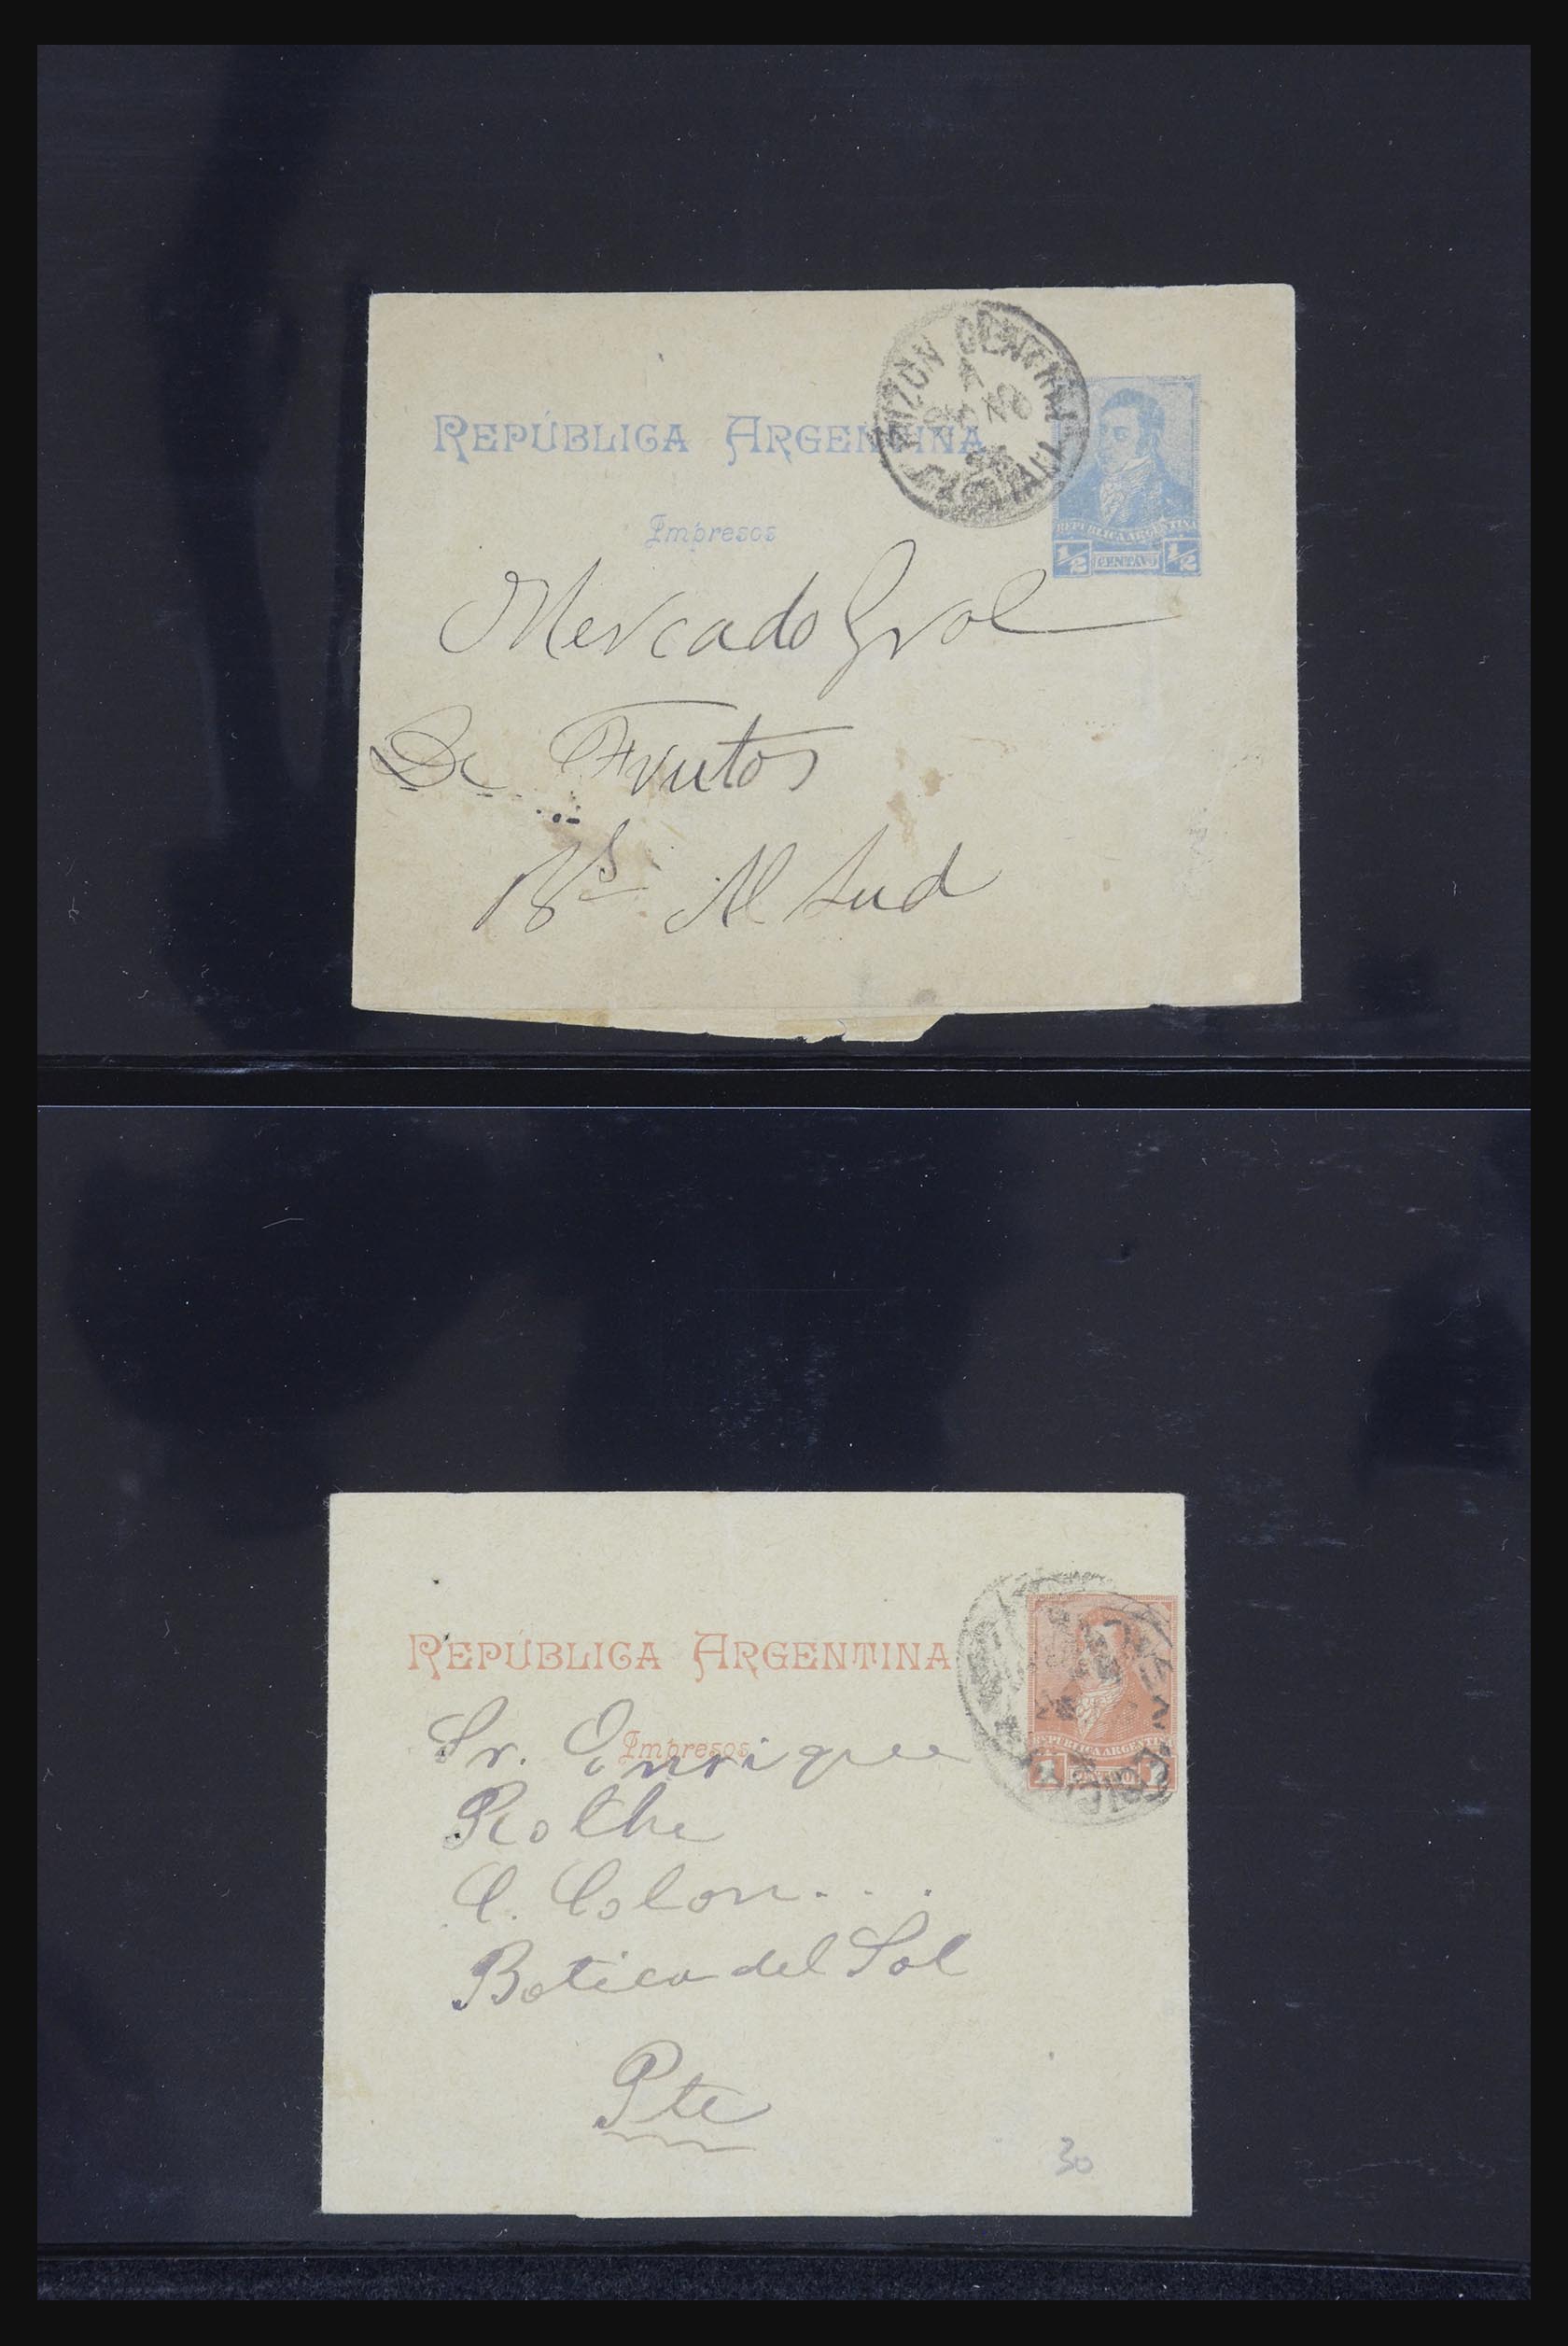 REPÚBLICA ARGENTINA
BUZON CENTRAL
Impresos
REPUBLICA ARGENTINA
1/2 CENTAVO 1/2
Mercado Gral
De Frutos
Bs Al Sud
REPÚBLICA ARGENTINA
Impresos
REPUBLICA ARGENTINA
1 CENTAVO 1
Sr. Enrique
Rothe
C. Colon...
Botica del Sol
Pte
30